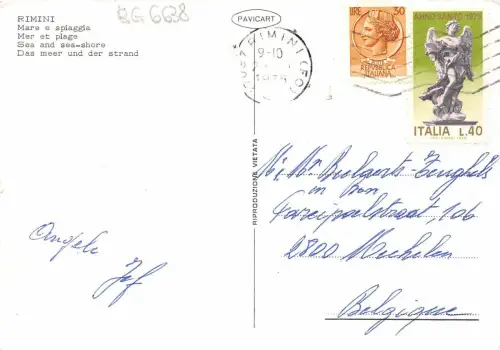 RIMINI
Mare e spiaggia
Mer et plage
Sea and sea-shore
Das meer und der strand
BG 668
PAVICART
RIMINI (FO)
9-10
1975
LIRE 30
REPVBBLICA
ITALIANA
ANNO SANTO 1975
ITALIA L.40
RIPRODUZIONE VIETATA
Angèle
Jef
Mr, Mm Bulgerts-Tenghels
en
2800 Mechelen
Belgique